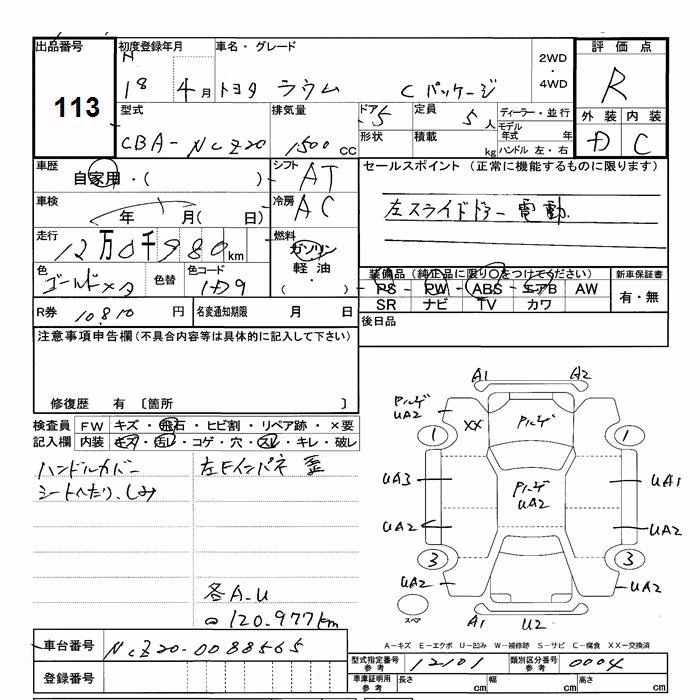 出品番号 初度登録年月 車名・グレード 2WD ・ 4WD 評価点
113
H 18 4月 トヨタ ラウム Cパッケージ R
型式 排気量 ドア 定員 ディーラー・並行 外装 内装
CBA-NCZ20 1500 CC 5 5人 モデル年式 年 D C
形状 積載 kg ハンドル 左・右
車歴 自家用・( ) シフト AT セールスポイント (正常に機能するものに限ります)
車検 年 月( 日) 冷房 AC 左スライドドアー 電動
走行 12万0千980km 燃料 ガソリン 軽油 ・( )
色 ゴールドメタ 色替 色コード 装備品 (純正品に限り○をつけてください) 新車保証書
PS - PW - ABS - エアB AW 有・無
SR ナビ TV カワ
R券 10,810 円 名変通知期限 月 日 後日品
注意事項申告欄 (不具合内容等は具体的に記入して下さい)
修復歴 有 〔箇所 〕
検査員 FW キズ・飛石・ヒビ割・リペア跡・×要
記入欄 内装 キズ・汚レ・コゲ・穴・スレ・キレ・破レ
ハンドルカバー
シートへたり、しみ
左Fインパネ 歪
各A.U
120.977km
A1 A2
UA2 XX
1 1
UA3 UA2 UA1
UA2 UA2
3 3
UA2 UA2
スペア A1 U2
A-キズ E-エクボ U-凹み W-補修跡 S-サビ C-腐食 XX-交換済
車台番号 NCZ20-0088565
型式指定番号 参考 12101 類別区分番号 参考 0004
登録番号 車庫証明用 参考 長さ cm 幅 cm 高さ cm